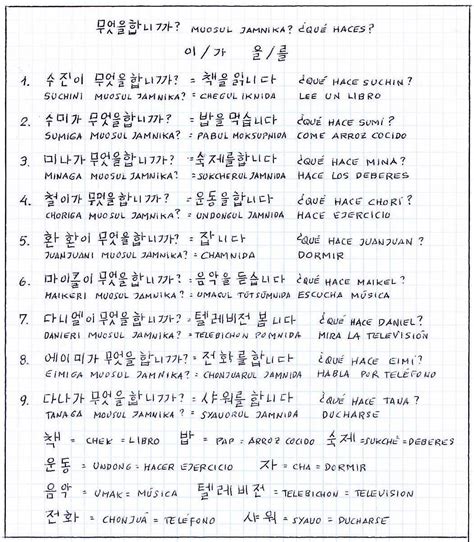 무엇을합니까? MUOSUL JAMNIKA? ¿QUÉ HACES?
이/가 을/를
1. 수진이 무엇을합니까? = 책을읽니다 ¿QUÉ HACE SUCHIN?
SUCHINI MUOSUL JAMNIKA? = CHEGUL IKNIDA LEE UN LIBRO
2. 수미가 무엇을합니까? = 밥을먹습니다 ¿QUÉ HACE SUMÍ?
SUMIGA MUOSUL JAMNIKA? = PABUL MOKSUPNIDA COME ARROZ COCIDO
3. 미나가 무엇을합니까? = 숙제를합니다 ¿QUÉ HACE MINA?
MINAGA MUOSUL JAMNIKA? = SUKCHERUL JAMNIDA HACE LOS DEBERES
4. 철이가 무엇을합니까? = 운동을합니다 ¿QUÉ HACE CHORI?
CHORIGA MUOSUL JAMNIKA? = UNDONGUL JAMNIDA HACE EJERCICIO
5. 환환이 무엇을합니까? = 잡니다 ¿QUÉ HACE JUANJUAN?
JUANJUANI MUOSUL JAMNIKA? = CHAMNIDA DORMIR
6. 마이클이 무엇을합니까? = 음악을 듣습니다 ¿QUÉ HACE MAIKEL?
MAIKERI MUOSUL JAMNIKA? = UMAGUL TUTSUMNIDA ESCUCHA MÚSICA
7. 다니엘이 무엇을합니까? = 텔레비전 봅니다 ¿QUÉ HACE DANIEL?
DANIERI MUOSUL JAMNIKA? = TELEBICHON POMNIDA MIRA LA TELEVISIÓN
8. 에이미가 무엇을합니까? = 전화를합니다 ¿QUÉ HACE EIMÍ?
EIMIGA MUOSUL JAMNIKA? = CHONJUARUL JAMNIDA HABLA POR TELÉFONO
9. 다나가 무엇을합니까? = 샤워를합니다 ¿QUÉ HACE TANA?
TANAGA MOUSUL JAMNIKA? = SYAUORUL JAMNIDA DUCHARSE
책 = CHEK = LIBRO 밥 = PAP = ARROZ COCIDO 숙제 = SUKCHÉ = DEBERES
운동 = UNDONG = HACER EJERCICIO 자 = CHA = DORMIR
음악 = UMAK = MÚSICA 텔레비전 = TELEBICHON = TELEVISION
전화 = CHONJUÁ = TELÉFONO 샤워 = SYAUO = DUCHARSE